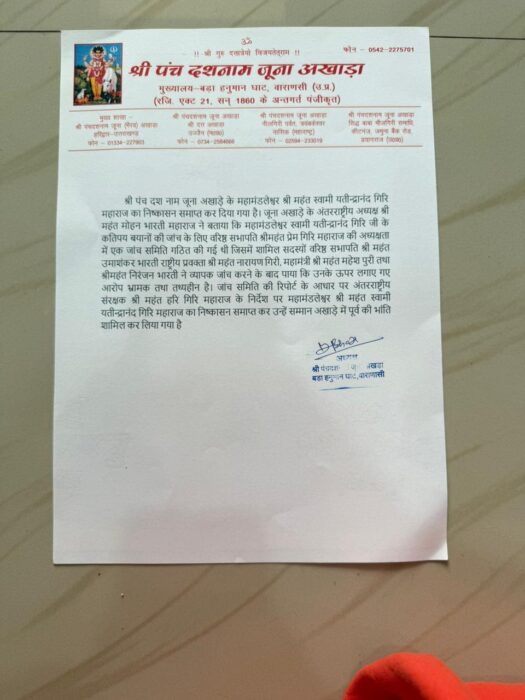 ॐ
-- !! श्री गुरु दत्तात्रेयो विजयतेतराम !! --
फोन – 0542-2275701
श्री पंच दशनाम जूना अखाड़ा
मुख्यालय–बड़ा हनुमान घाट, वाराणसी (उ.प्र.)
(रजि. एक्ट 21, सन् 1860 के अन्तर्गत पंजीकृत)
मुख्य शाखा –
श्री पंचदशनाम जूना (भैरव) अखाड़ा
हरिद्वार-उत्तराखण्ड
फोन – 01334-227903
श्री पंचदशनाम जूना अखाड़ा
श्री दत्त अखाड़ा
उज्जैन (म0प्र0)
फोन – 0734-2584666
श्री पंचदशनाम जूना अखाड़ा
नीलगिरी पर्वत, त्र्यंबकेश्वर
नासिक (महाराष्ट्र)
फोन – 02594-233019
श्री पंचदशनाम जूना अखाड़ा
सिद्ध बाबा मौजगिरी समाधि,
कीटगंज, जमुना बैंक रोड
प्रयागराज (उ0प्र0)
श्री पंच दश नाम जूना अखाड़े के महामंडलेश्वर श्री महंत स्वामी यतीन्द्रानंद गिरि
महाराज का निष्कासन समाप्त कर दिया गया है। जूना अखाड़े के अंतरराष्ट्रीय अध्यक्ष श्री
महंत मोहन भारती महाराज ने बताया कि महामंडलेश्वर स्वामी यतीन्द्रानंद गिरि जी के
कतिपय बयानों की जांच के लिए वरिष्ठ सभापति श्रीमहंत प्रेम गिरि महाराज की अध्यक्षता
में एक जांच समिति गठित की गई थी जिसमें शामिल सदस्यों वरिष्ठ सभापति श्री महंत
उमाशंकर भारती राष्ट्रीय प्रवक्ता श्री महंत नारायण गिरी, महामंत्री श्री महंत महेश पुरी तथा
श्रीमहंत निरंजन भारती ने व्यापक जांच करने के बाद पाया कि उनके ऊपर लगाए गए
आरोप भ्रामक तथा तथ्यहीन है। जांच समिति की रिपोर्ट के आधार पर अंतरराष्ट्रीय
संरक्षक श्री महंत हरि गिरि महाराज के निर्देश पर महामंडलेश्वर श्री महंत स्वामी
यतीन्द्रानंद गिरि महाराज का निष्कासन समाप्त कर उन्हें सम्मान अखाड़े में पूर्व की भांति
शामिल कर लिया गया है
अध्यक्ष
श्री पंचदश जूना अखाड़ा
बड़ा हनुमान घाट, वाराणसी